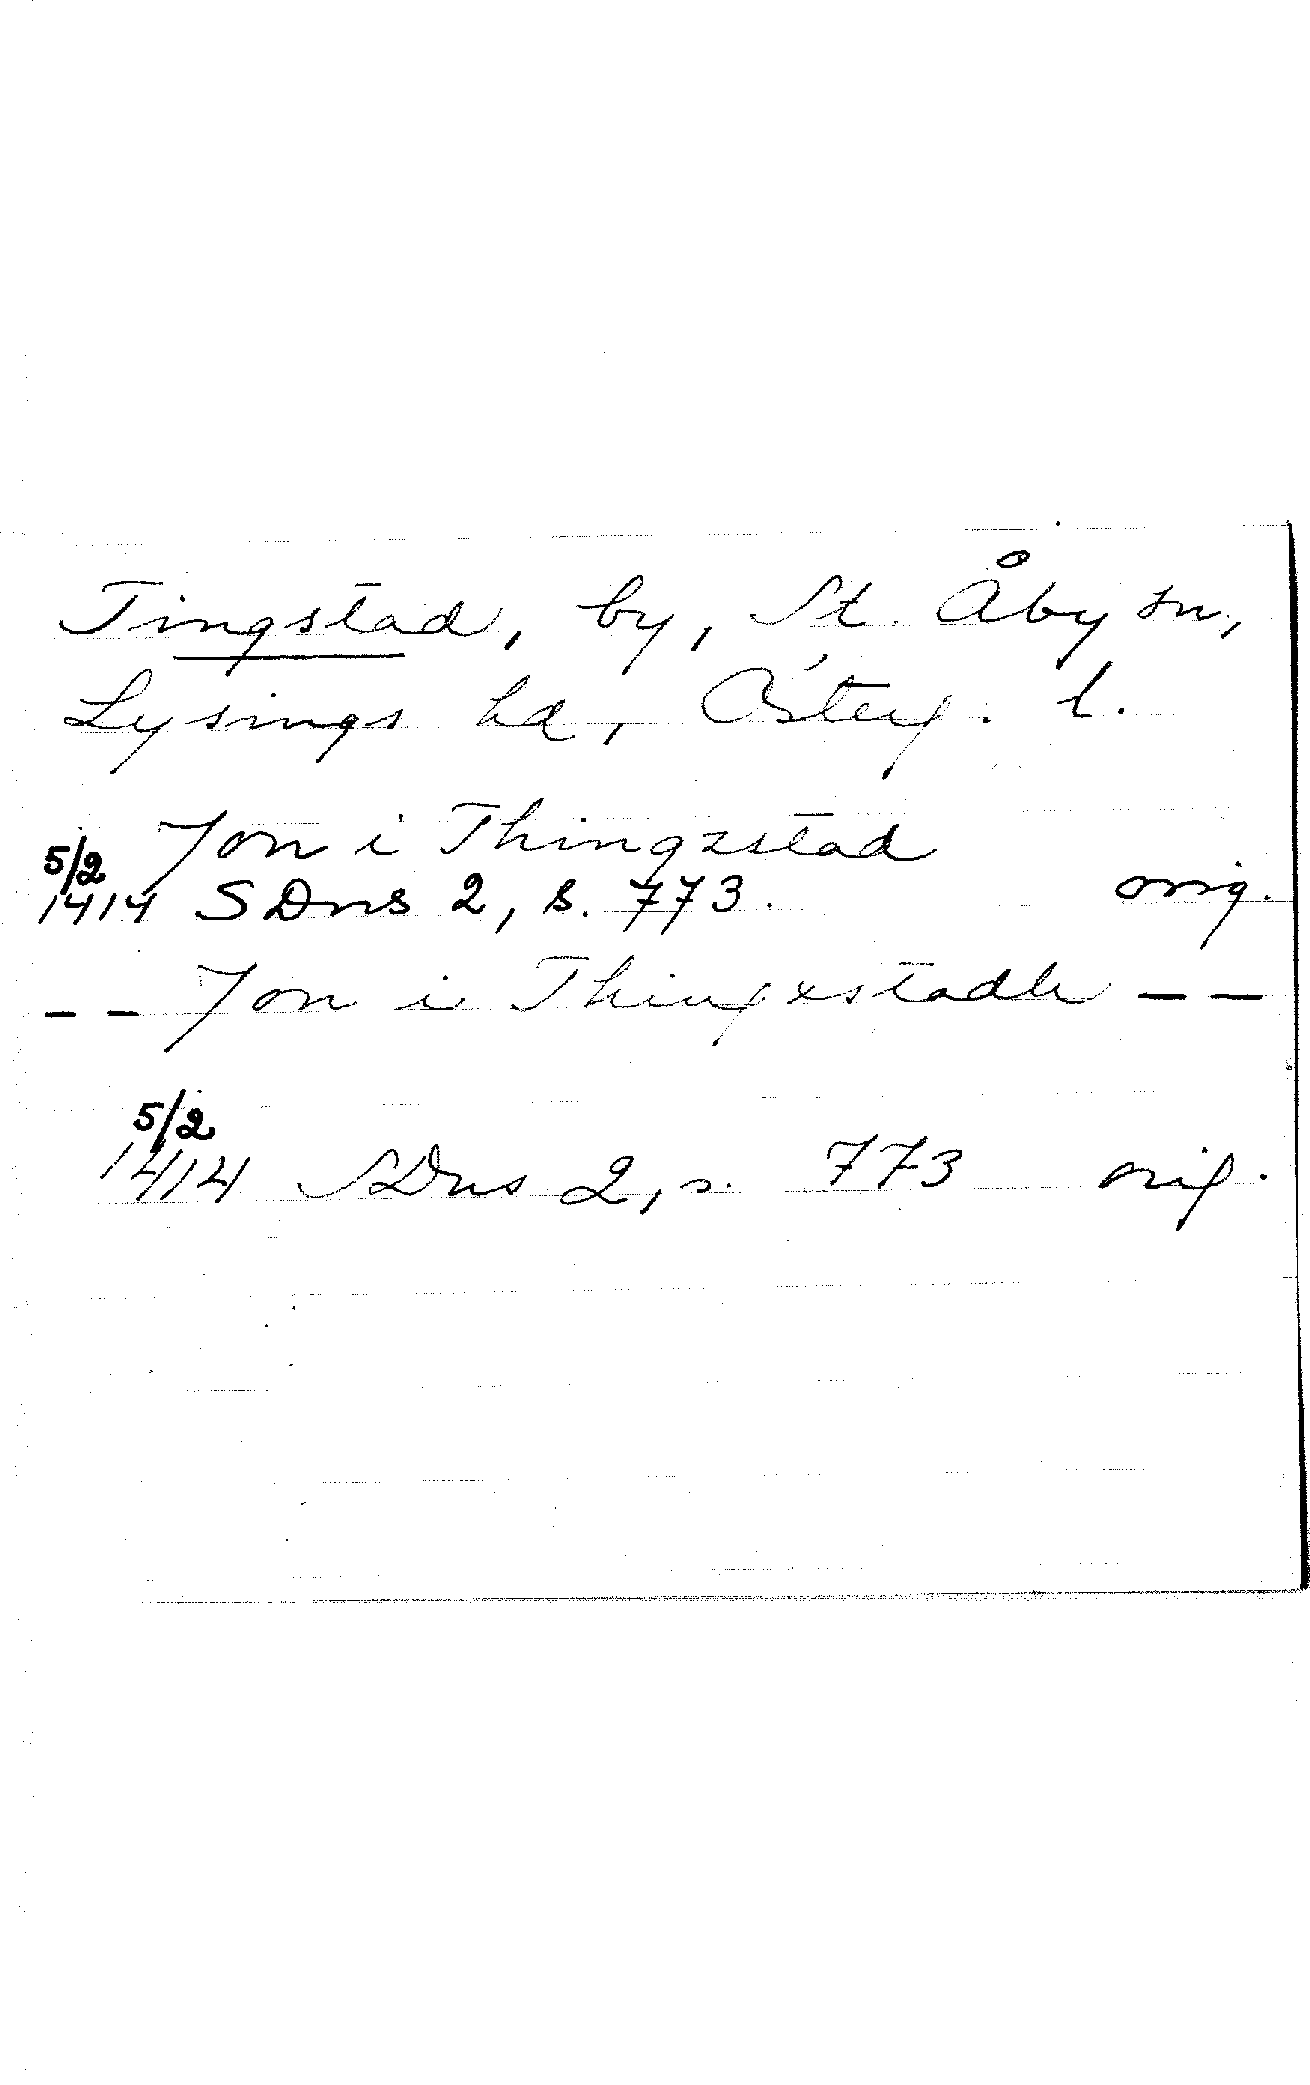 Tingstad, by, St. Åby sn,
Lysings hd, Österg. l.
Jon i Thingzstad
5/2
1414 SDns 2, s. 773. orig.
-- Jon i Thingxstadh --
5/2
1414 SDns 2, s. 773 orig.